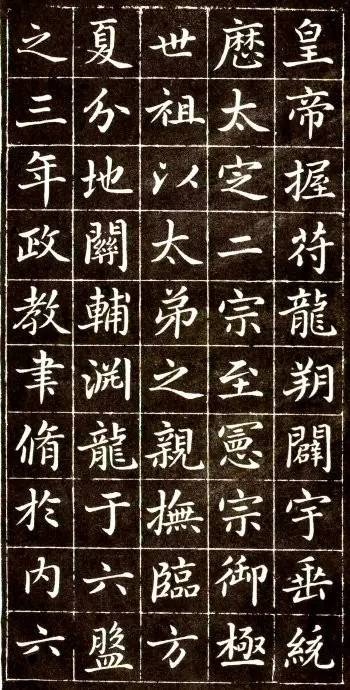 皇帝握符龍朔闢宇垂統
歷太定二宗至憲宗御極
世祖以太弟之親撫臨方
夏分地關輔淵龍于六盤
之三年政教聿脩於內六